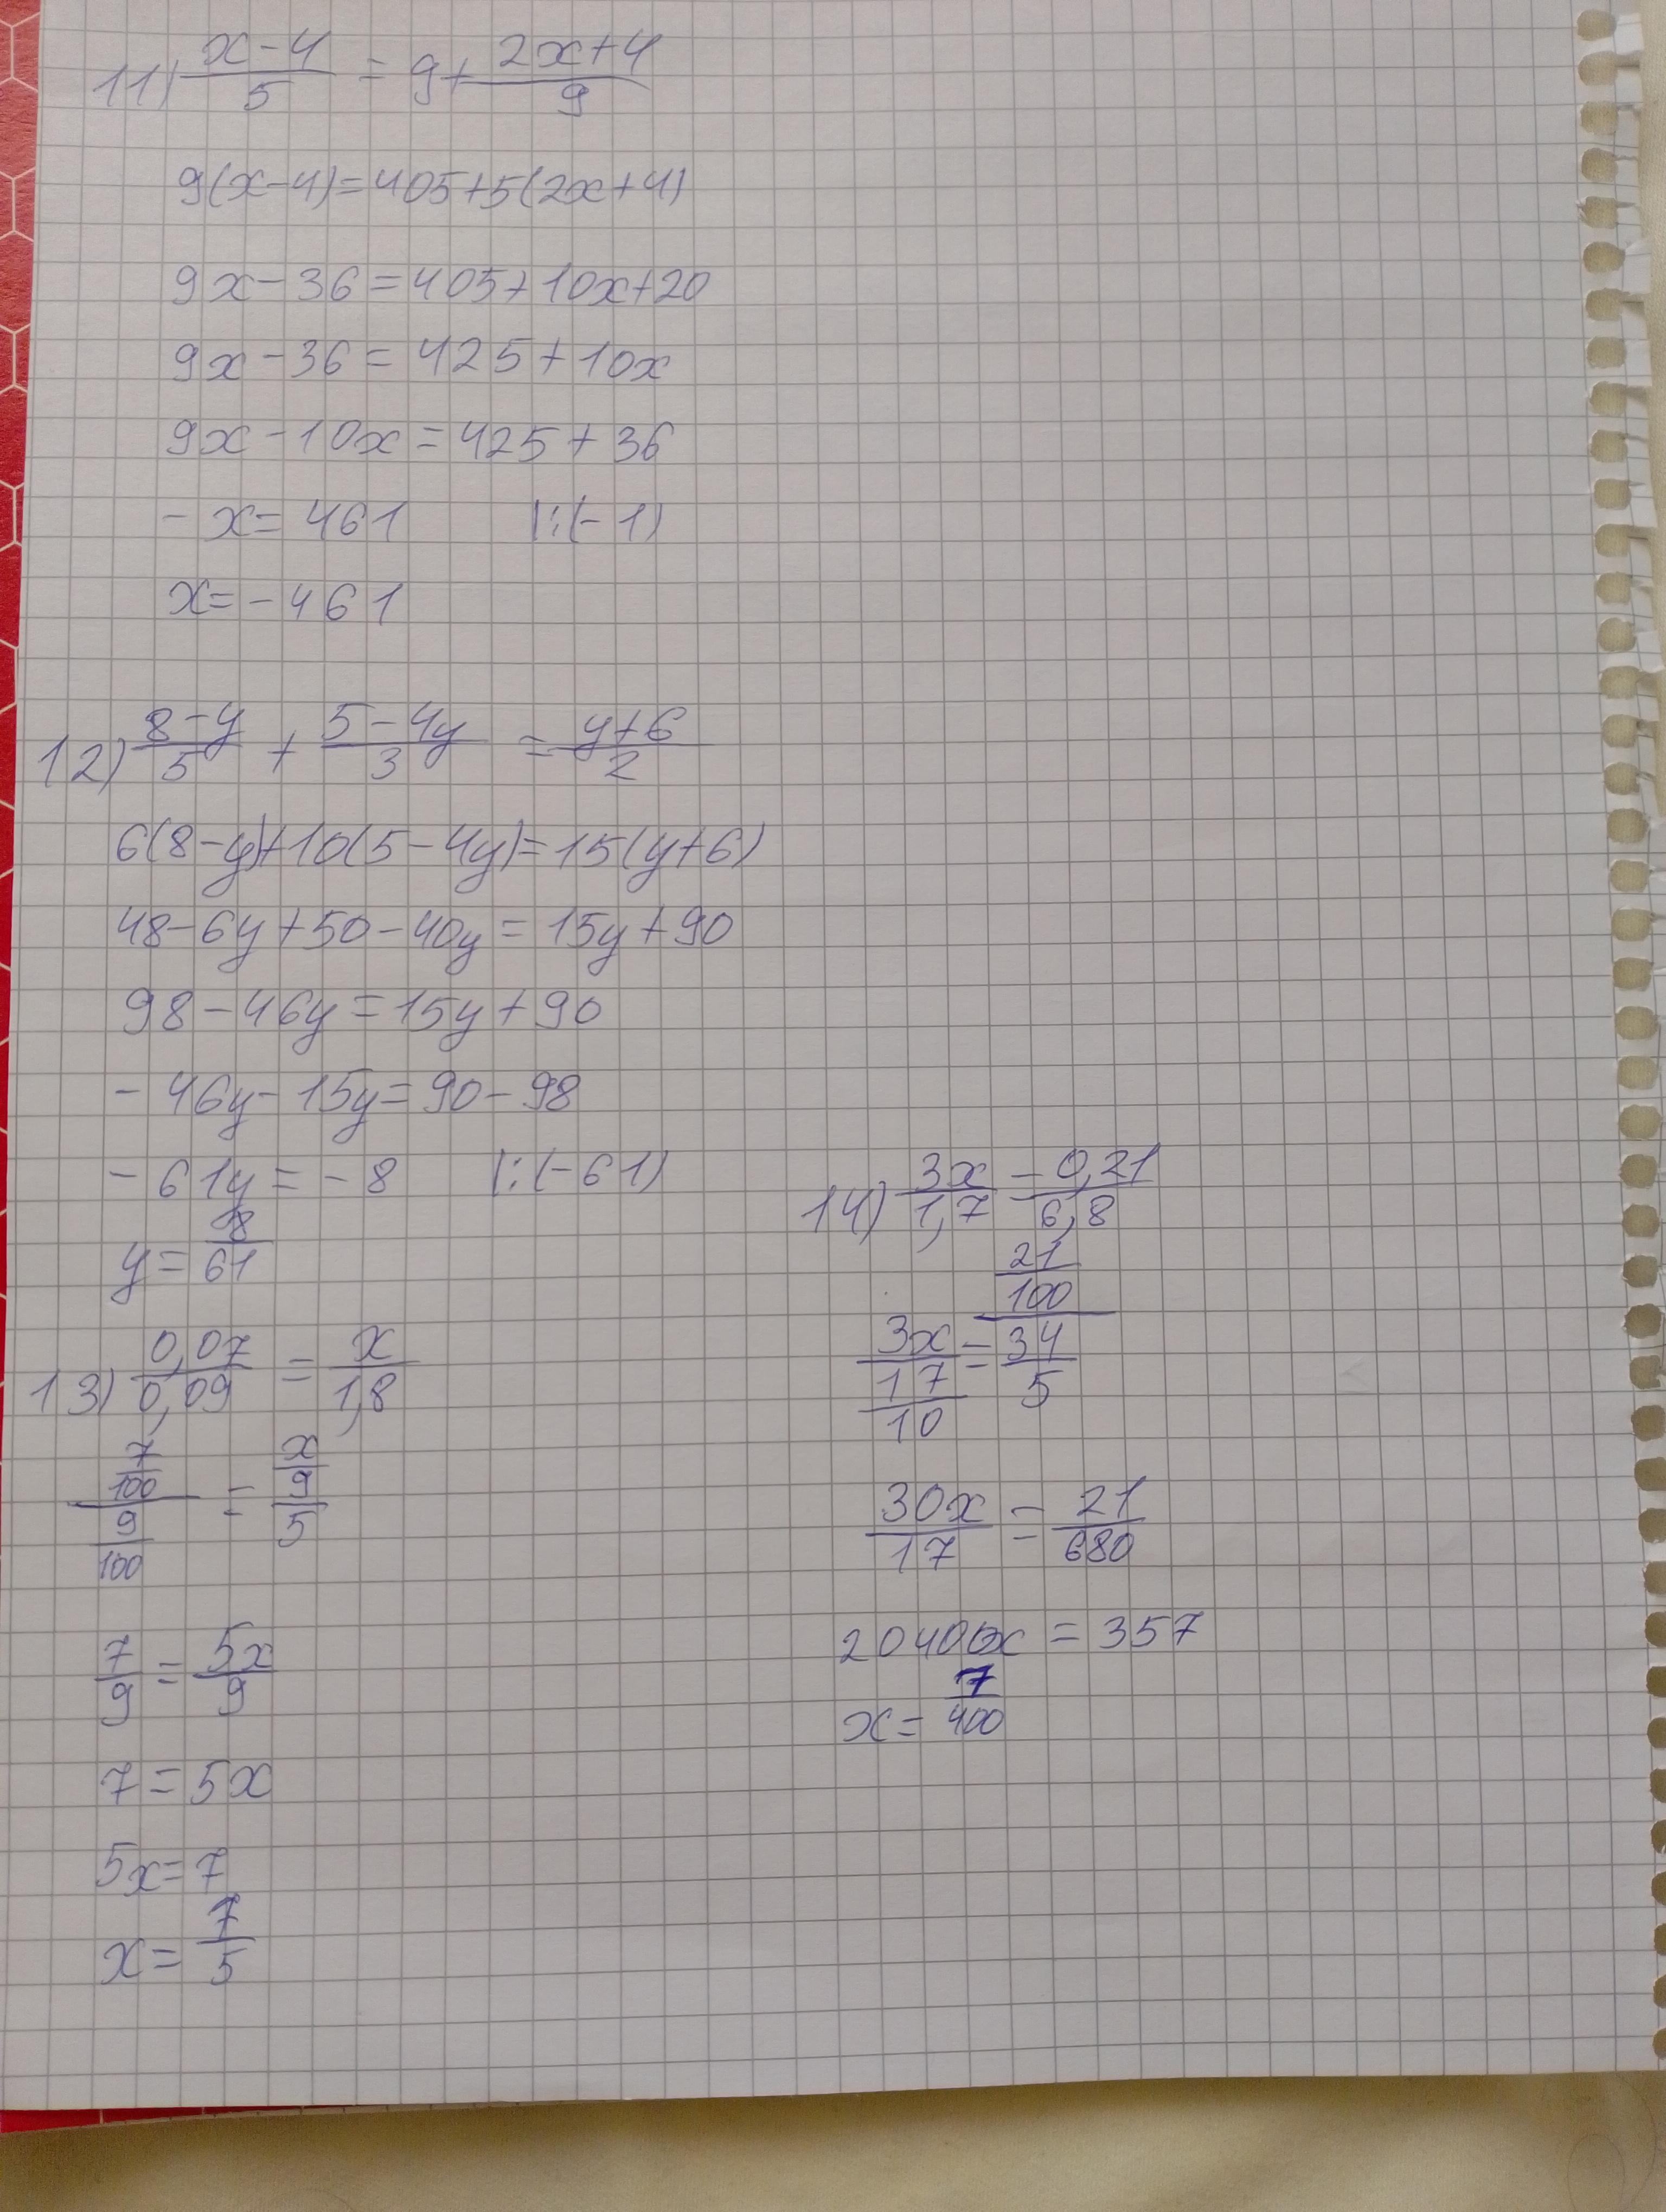 11) x-4/5 = 9+ 2x+4/9
9(x-4)=405+5(2x+4)
9x-36=405+10x+20
9x-36=425+10x
9x-10x=425+36
-x=461 |:(-1)
x=-461
12) 8-y/5 + 5-4y/3 = y+6/2
6(8-y)+10(5-4y)=15(y+6)
48-6y+50-40y=15y+90
98-46y=15y+90
-46y-15y=90-98
-61y=-8 |:(-61)
y=8/61
13) 0,07/0,09 = x/1,8
7/100/9/100 = x/9/5
7/9 = 5x/9
7=5x
5x=7
x=7/5
14) 3x/1,7 = 0,21/6,8
3x/17/10 = 21/100/34/5
30x/17 = 21/680
20400x=357
x=7/400